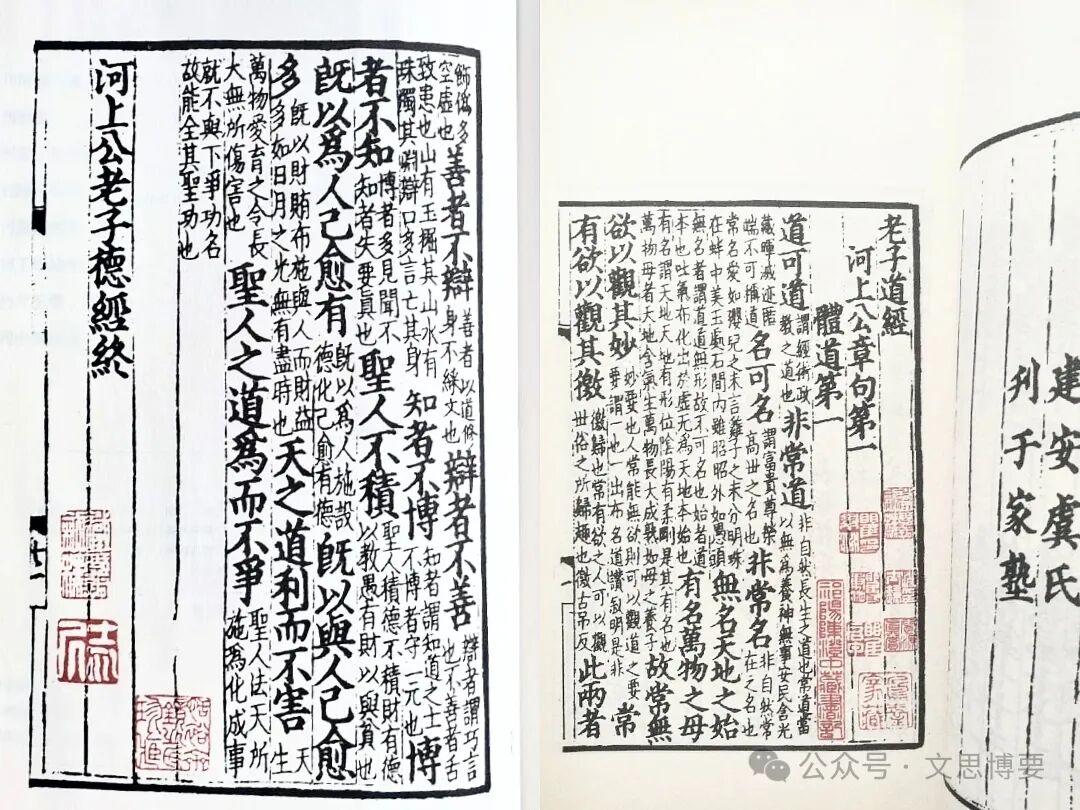 飾偽多空虛也善者不辯善者以道修身不綵文也辯者不善辯者謂巧言也不善者舌
致患也山有玉掘其山水有珠濁其淵辯口多言亡其身知者不博知者謂知道之士不博者守一元也博
者不知博者多見聞不知者失要真也聖人不積聖人積德不積財有德以教愚有財以與貧也
既以為人己愈有既以為人施設德化己愈有德既以與人己愈
多既以財賄布施與人而財益多如日月之光無有盡時也天之道利而不害天生
萬物愛育之令長大無所傷害也聖人之道為而不爭聖人法天所施為化成事
就不與下爭功名故能全其聖功也
河上公老子德經終
老子道經
河上公章句第一
體道第一
道可道謂經術政教之道也非常道非自然長生之道也常道當以無為養神無事安民含光
藏暉滅迹匿端不可稱道名可名謂富貴尊榮高世之名也非常名非自然常在之名也
常名愛如嬰兒之未言雞子之未分明珠在蚌中美玉處石間內雖昭昭外如愚頑無名天地之始
無名者謂道道無形故不可名也始者道本也吐氣布化出於虛無為天地本始也有名萬物之母
有名謂天地天地有形位陰陽有柔剛是其有名也萬物母者天地含氣生萬物長大成熟如母之養子故常無
欲以觀其妙妙要也人常能無欲則可以觀道之要要謂一也一出布名道讚敘明是非常
有欲以觀其徼徼歸也常有欲之人可以觀世俗之所歸趣也徼古弔反此兩者
祁陽陳澄中藏書記
建安虞氏
刊于家塾
公众号·文思博要